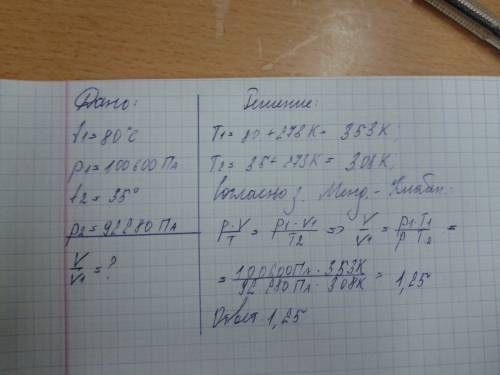 Дано:
t1=80°C
p1=100600 Па
t2=35°
p2=92280 Па
V/V1=?
Решение:
T1=80+273К=353К;
T2=35+273К=308К;
Согласно з. Менд.-Клап.
p·V/T = p1·V1/T2 => V/V1 = p1·T1/p T2 =
= 100600Па·353К/92280Па·308К = 1,25
Ответ 1,25